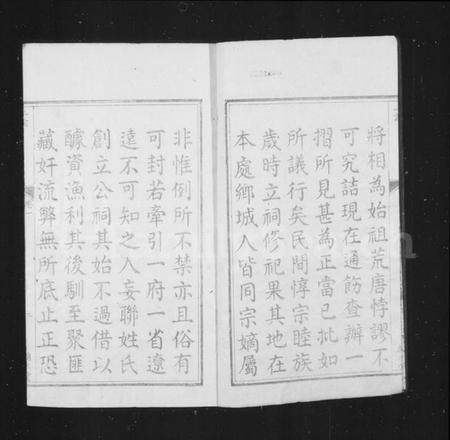 將相為始祖荒唐悖謬不
可究詰現在通飭查辦一
摺所見甚為正當已批如
所議行矣民間惇宗睦族
歲時立祠修祀果其地在
本處鄉城人皆同宗嫡屬
非惟例所不禁亦且俗有
可封若牽引一府一省遼
遠不可知之人妄聯姓氏
創立公祠其始不過借以
醵資漁利其後馴至聚匪
藏奸流弊無所底止正恐